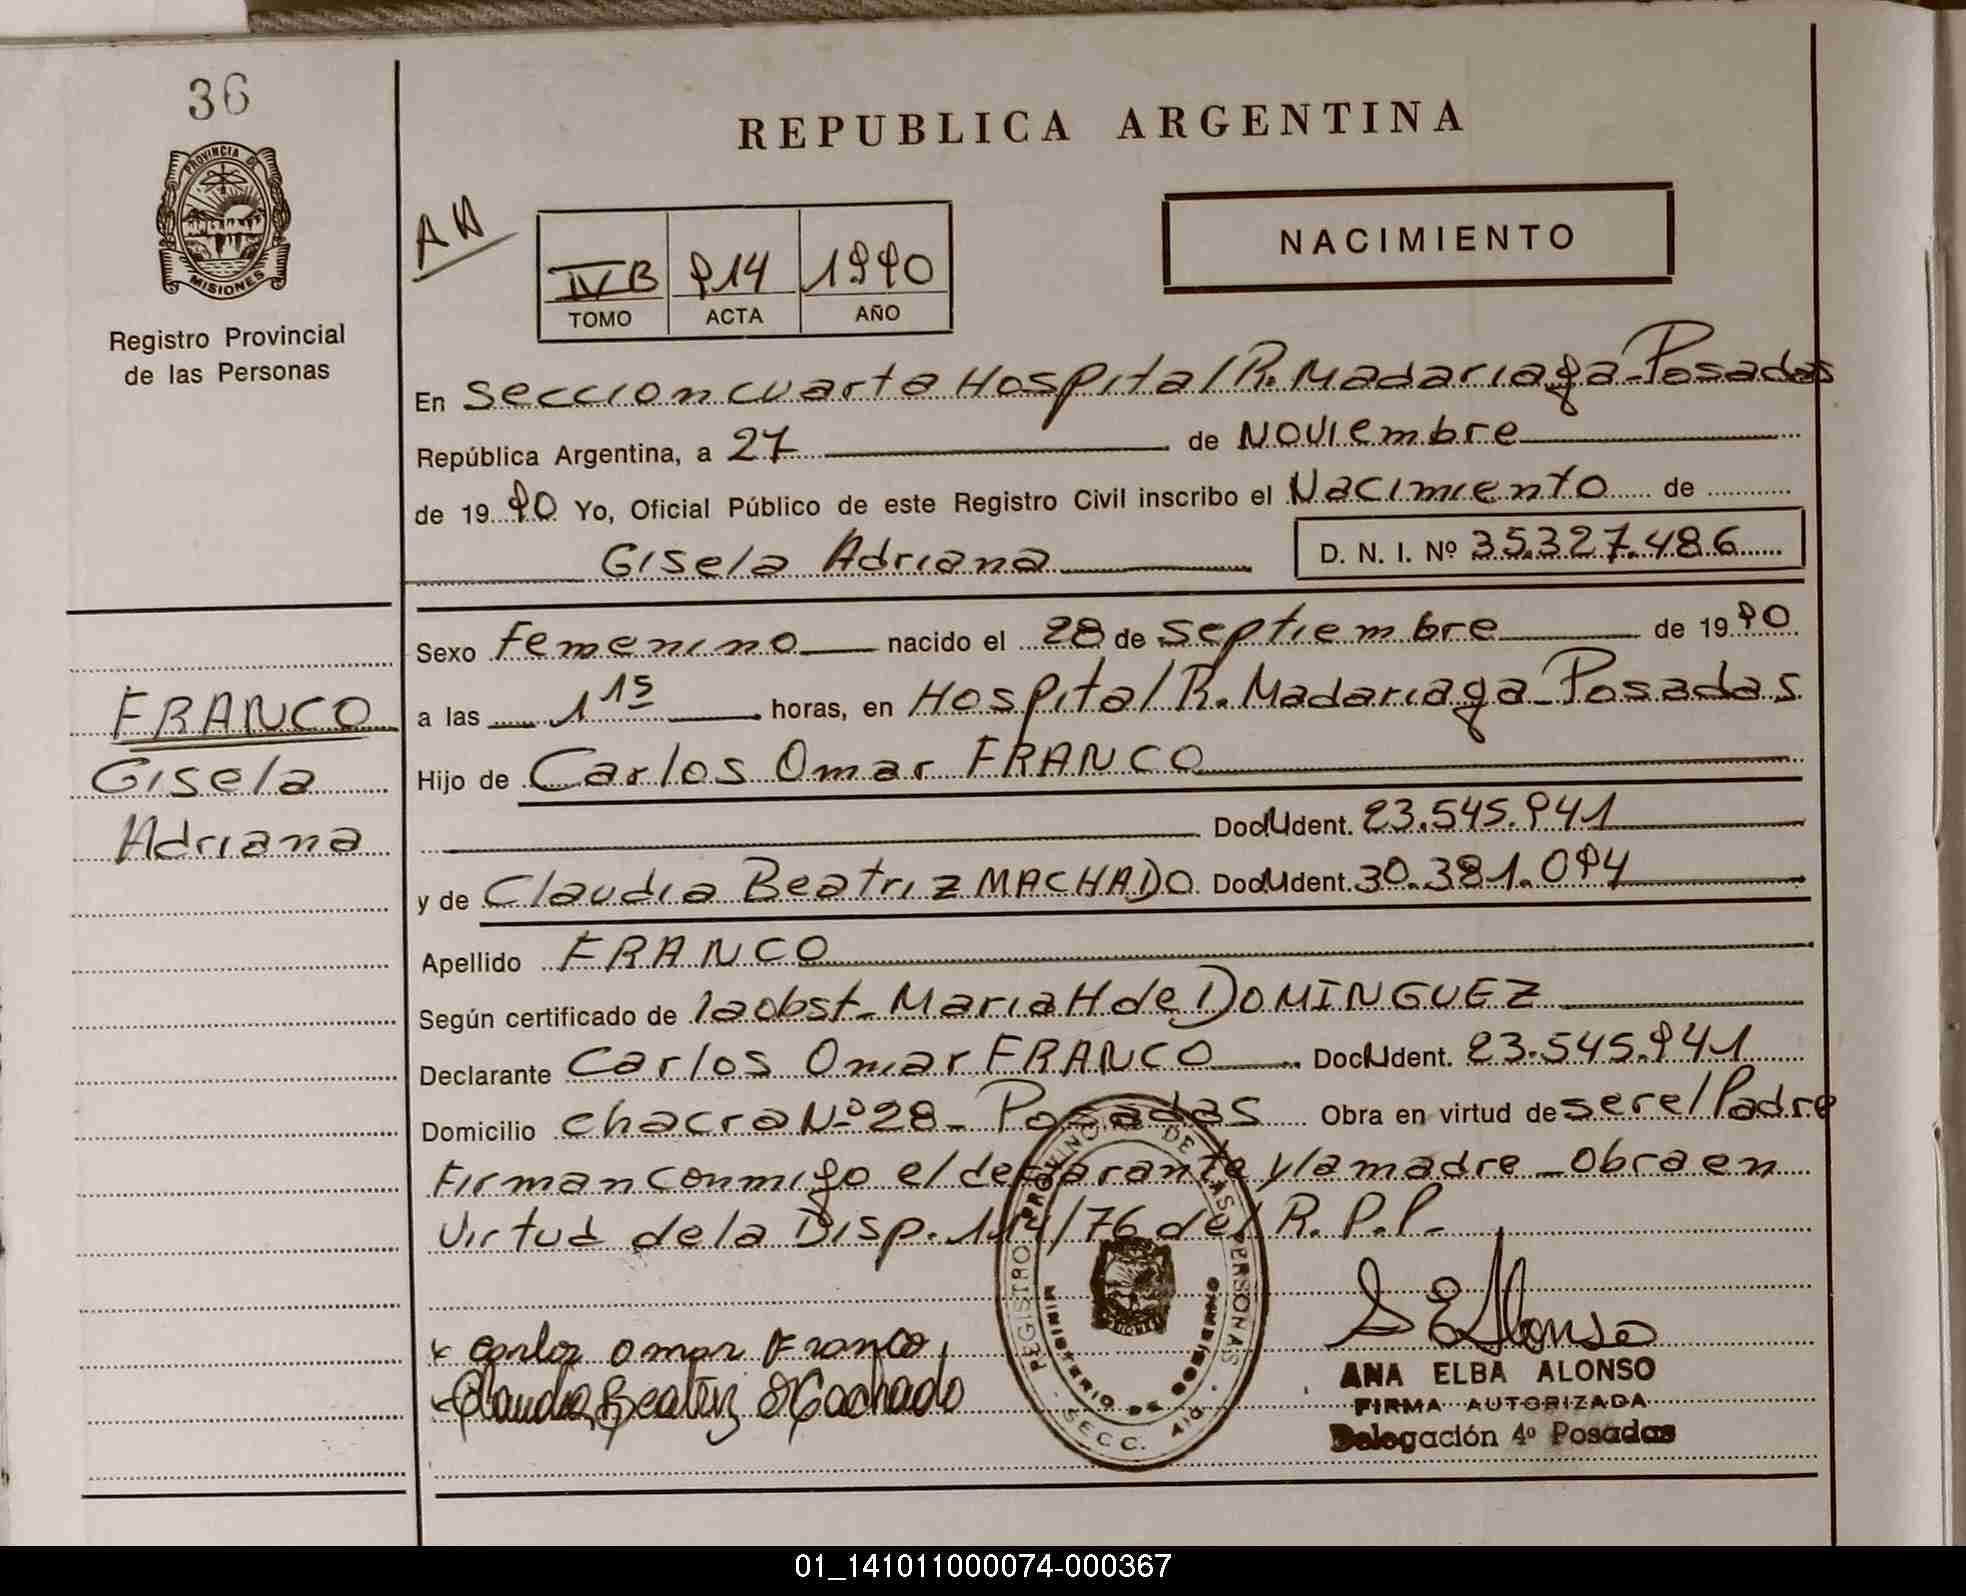 36
PROVINCIA DE
MISIONES
Registro Provincial
de las Personas
REPUBLICA ARGENTINA
NACIMIENTO
IV B 914 1990
TOMO ACTA AÑO
En Seccion cuarta Hospital R. Madariaga - Posadas
República Argentina, a 27 de Noviembre
de 1990 Yo, Oficial Público de este Registro Civil inscribo el Nacimiento de
Gisela Adriana D. N. I. Nº 35.327.486
Sexo Femenino nacido el 28 de Septiembre de 1990
a las 1 15 horas, en Hospital R. Madariaga - Posadas
Hijo de Carlos Omar FRANCO
Doc. Ident. 23.545.941
y de Claudia Beatriz MACHADO Doc. Ident. 30.381.094
Apellido FRANCO
Según certificado de la obst. Maria H de DOMINGUEZ
Declarante Carlos Omar FRANCO Doc. Ident. 23.545.941
Domicilio chacra Nº 28 - Posadas Obra en virtud de ser el Padre
Firman conmigo el declarante y la madre - Obra en
Virtud de la Disp. 114/76 del R. P. P.
FRANCO
Gisela
Adriana
x Carlos Omar Franco
Claudia Beatriz Machado
REGISTRO PROVINCIAL DE LAS PERSONAS
MINISTERIO DE GOBIERNO
SECC. 4ta
ANA ELBA ALONSO
FIRMA AUTORIZADA
Delegación 4º Posadas
01_141011000074-000367